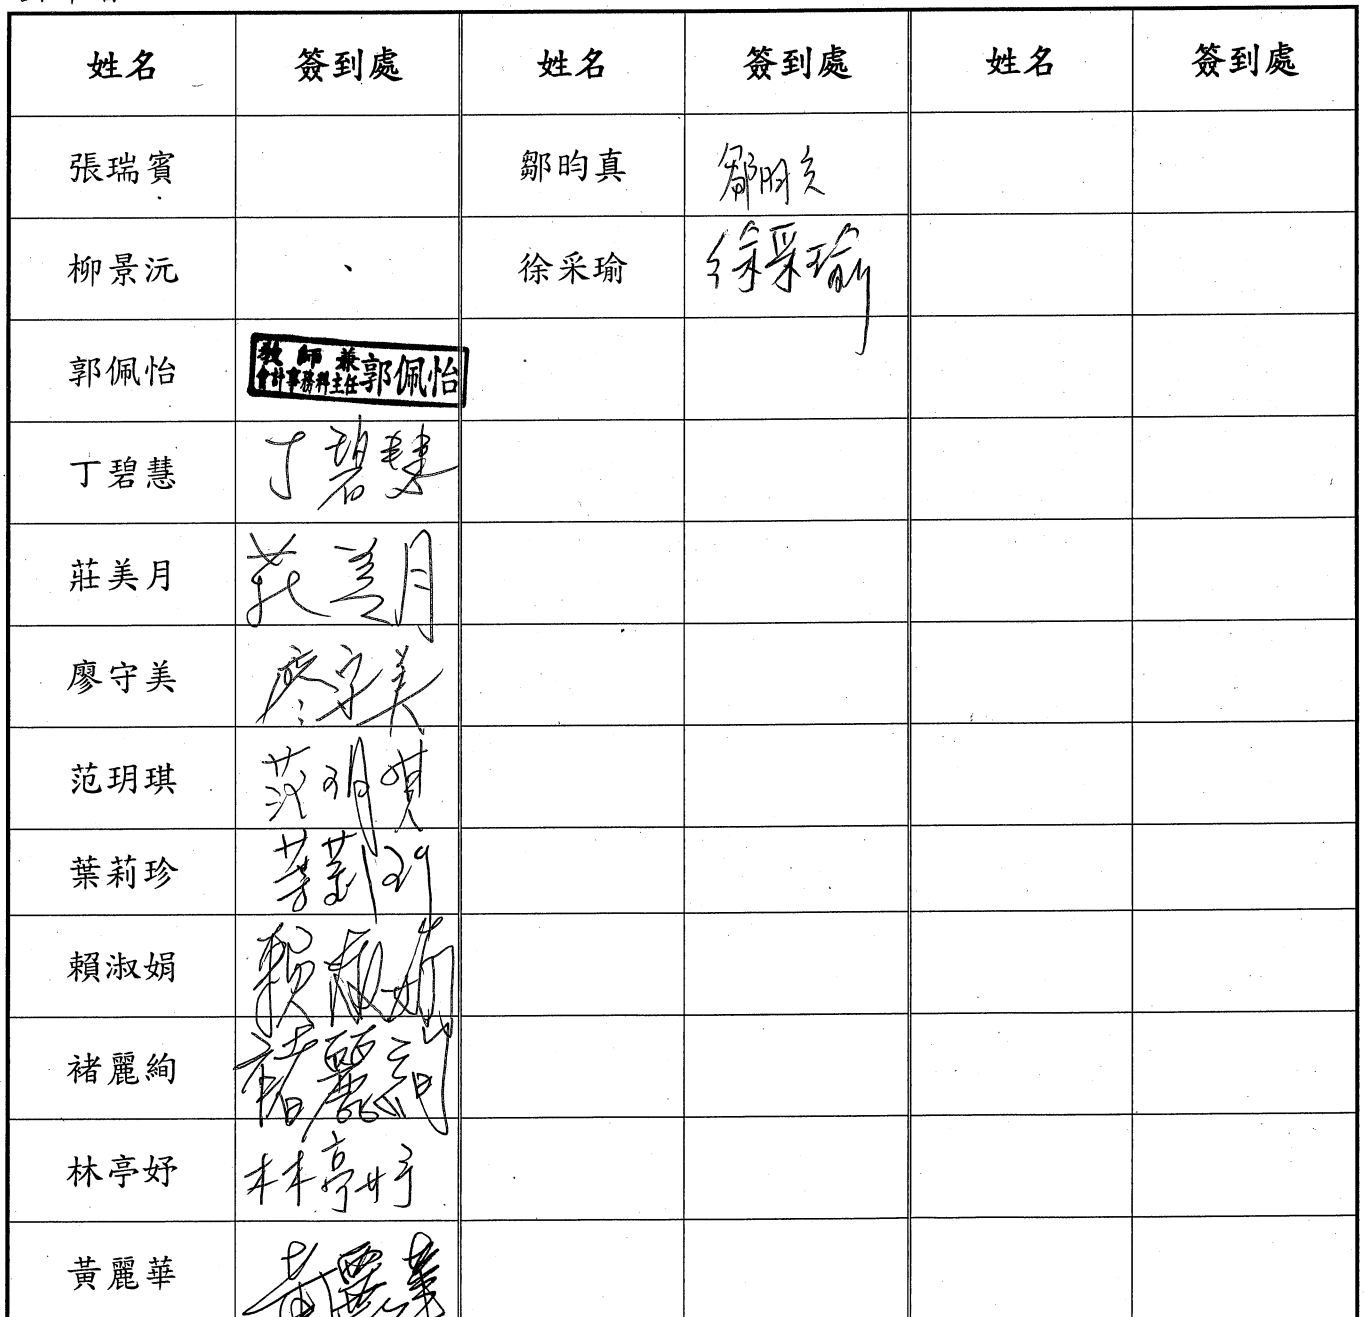 姓名 簽到處 姓名 簽到處 姓名 簽到處
張瑞賓 鄒昀真 鄒昀真
柳景沅 徐采瑜 徐采瑜
郭佩怡 教師兼會計事務科主任 郭佩怡
丁碧慧 丁碧慧
莊美月 莊美月
廖守美 廖守美
范玥琪 范玥琪
葉莉珍 葉莉珍
賴淑娟 賴淑娟
褚麗絢 褚麗絢
林亭妤 林亭妤
黃麗華 黃麗華